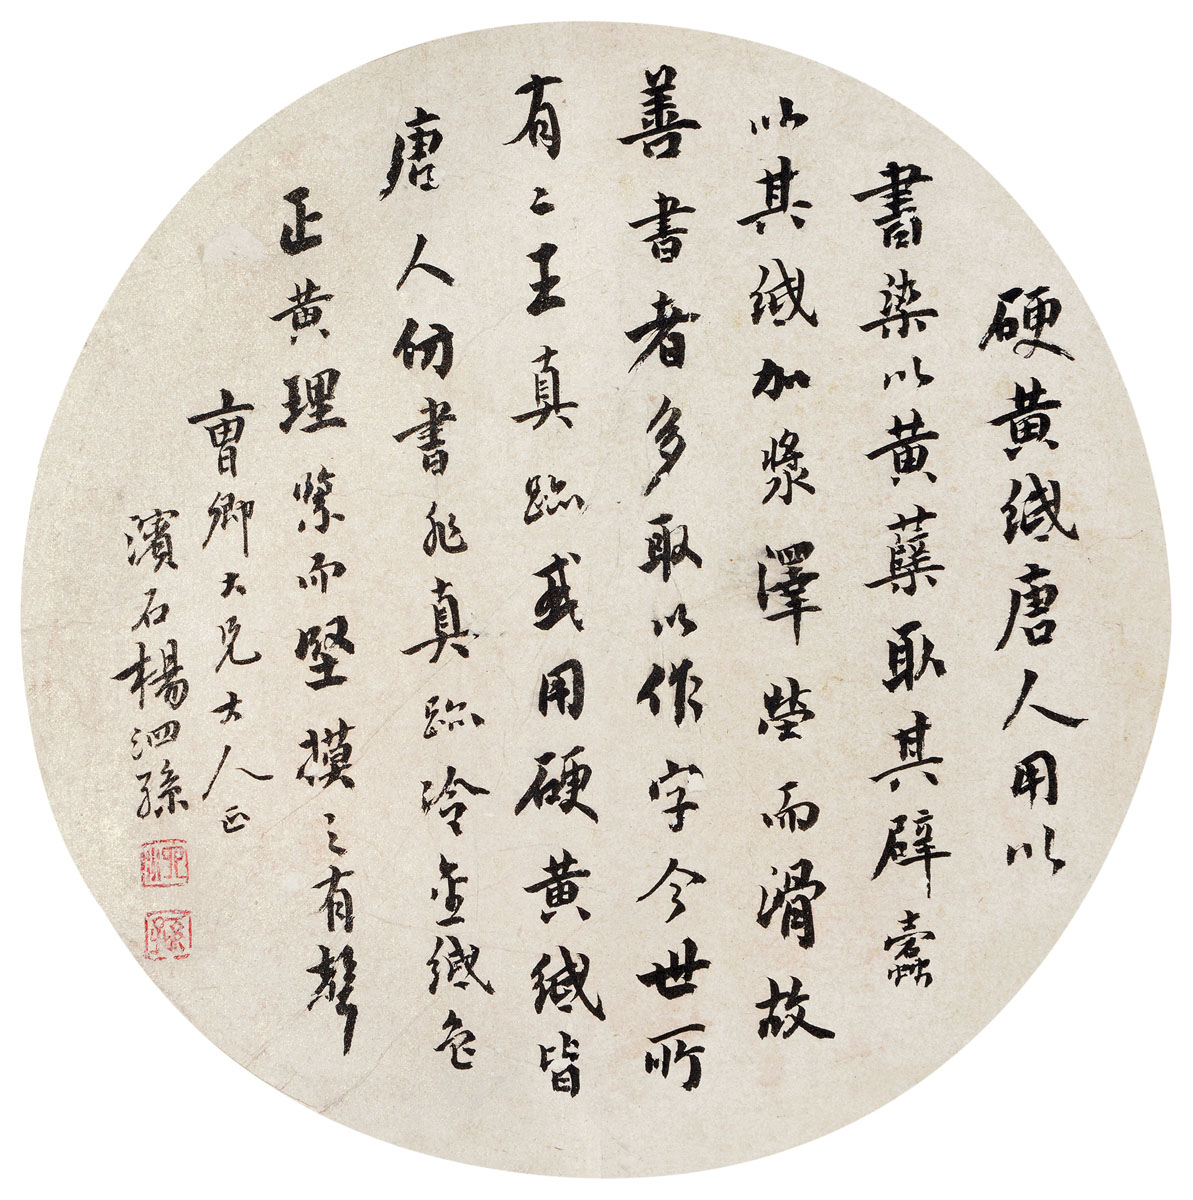 硬黄紙唐人用以
書染以黄蘗取其辟蠹
以其紙加漿澤瑩而滑故
善書者多取以作字今世所
有二王真跡或用硬黄紙皆
唐人仿書非真跡冷金紙色
正黄理緊而堅摸之有聲
曹卿大兄大人正
濱石楊泗孫
泗
孫